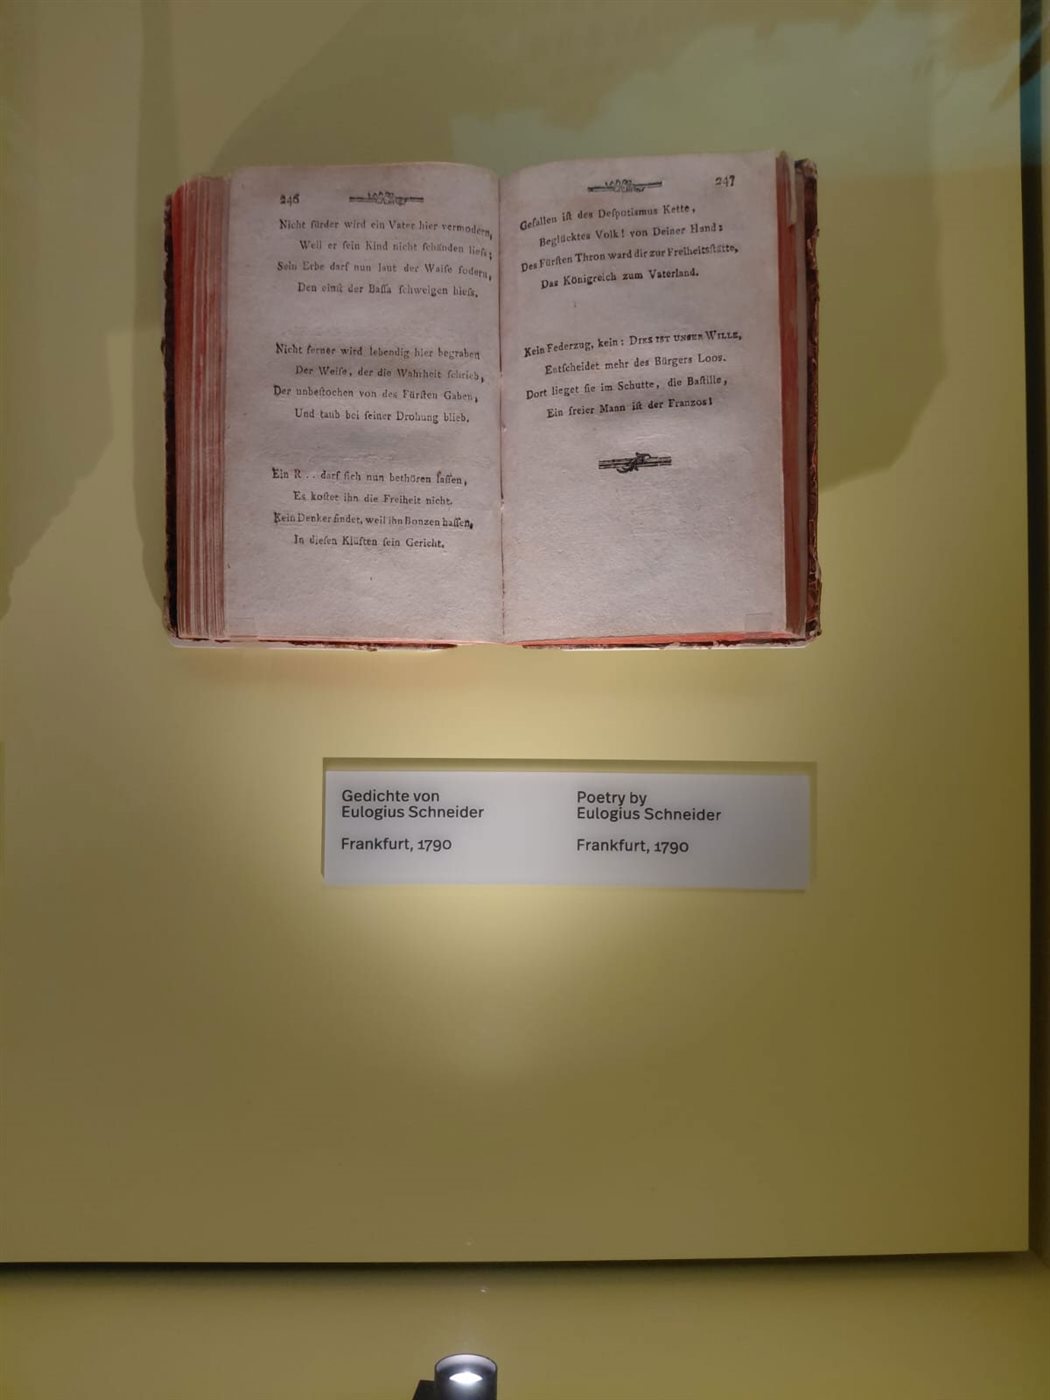 246
Nicht fürder wird ein Vater hier vermodern,
Weil er ſein Kind nicht ſchänden lieſs;
Sein Erbe darf nun laut der Waiſe fodern,
Den einſt der Baſſa ſchweigen hieſs.
Nicht ferner wird lebendig hier begraben
Der Weiſe, der die Wahrheit ſchrieb,
Der unbeſtochen von des Fürſten Gaben,
Und taub bei ſeiner Drohung blieb.
Ein R . . darf ſich nun bethören laſſen,
Es koſtet ihn die Freiheit nicht.
Kein Denker findet, weil ihn Bonzen haſſen,
In dieſen Klüften ſein Gericht.
247
Gefallen iſt des Deſpotismus Kette,
Beglücktes Volk! von Deiner Hand:
Des Fürſten Thron ward dir zur Freiheitsſtätte,
Das Königreich zum Vaterland.
Kein Federzug, kein: DIES IST UNSER WILLE,
Entſcheidet mehr des Bürgers Loos.
Dort lieget ſie im Schutte, die Baſtille,
Ein freier Mann iſt der Franzos!
Gedichte von
Eulogius Schneider
Frankfurt, 1790
Poetry by
Eulogius Schneider
Frankfurt, 1790